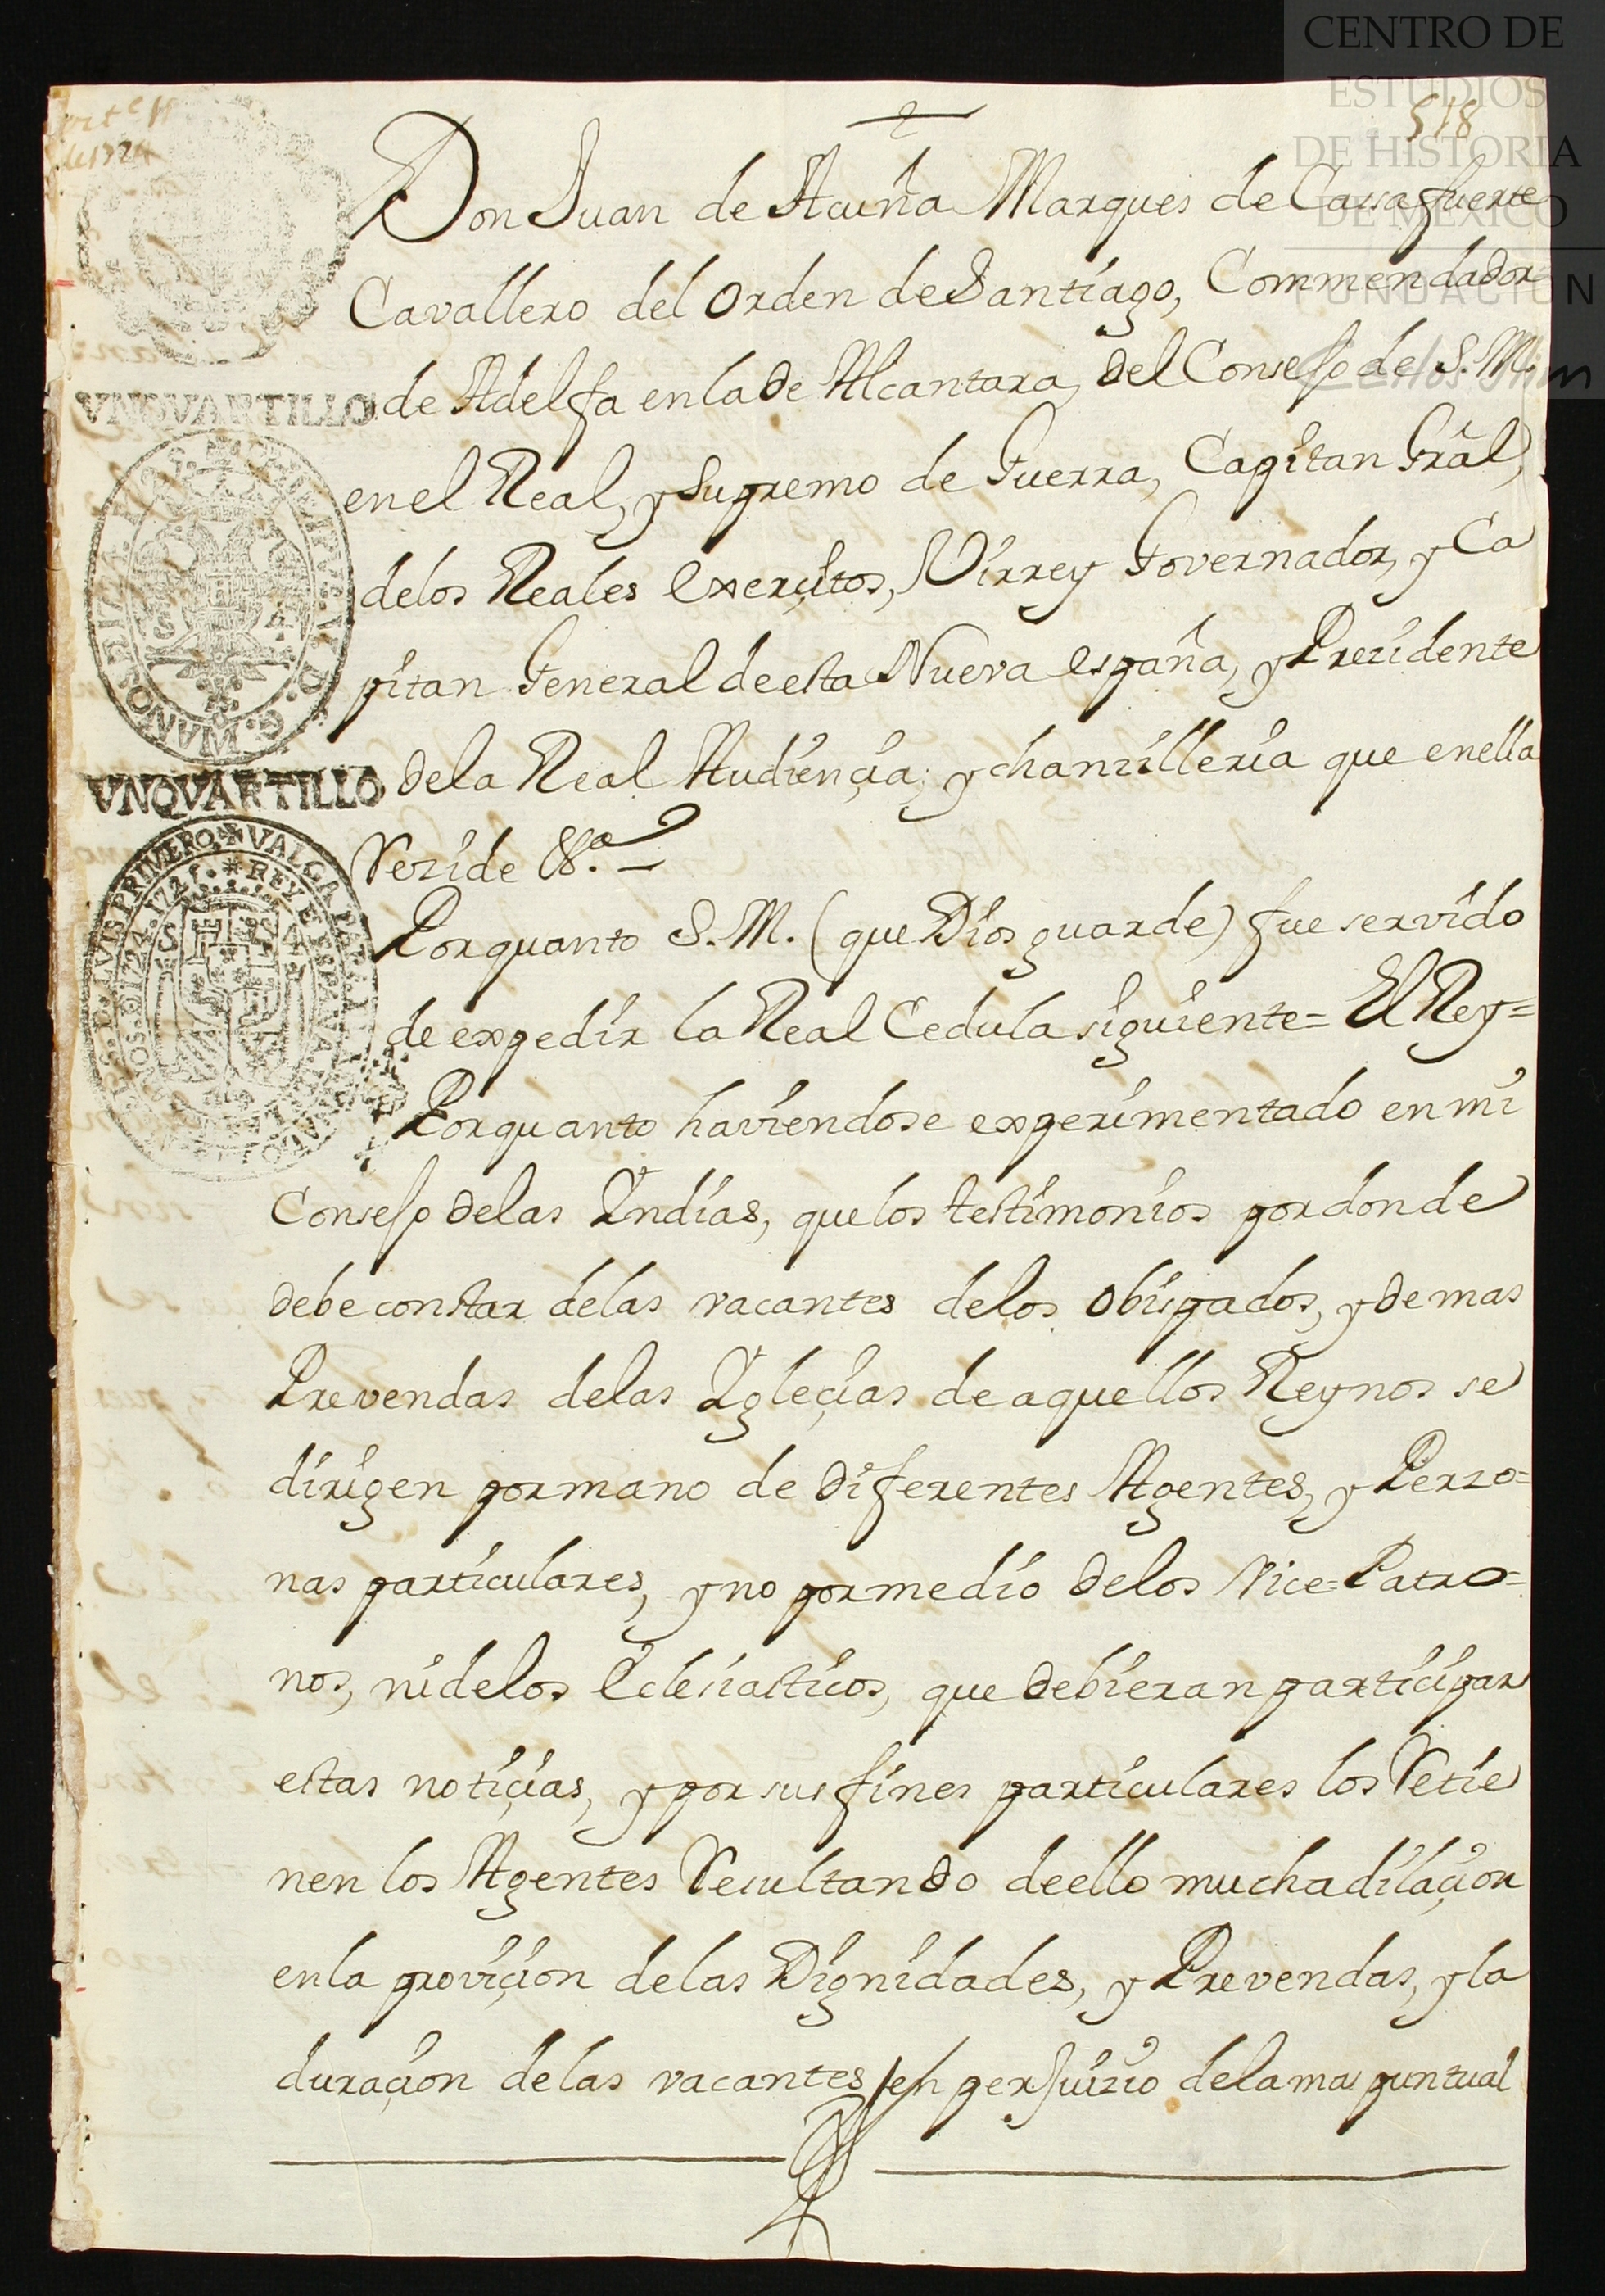 CENTRO DE
ESTUDIOS
DE HISTORIA
DE MEXICO
FUNDACION
Carlos Slim
518
de 1724
Don Juan de Acuña Marques de Cassafuerte
Cavallero del Orden de Santiago, Commendador
de Adelfa en la de Alcantara, del Consejo de S. M.
en el Real, y Supremo de Guerra, Capitan Grãl,
de los Reales Exerçitos, Virrey Governador, y Ca
pitan General de esta Nueva españa, y Prezidente
de la Real Audiençia, y chanzilleria que en ella
Rezide &ª.
Por quanto S. M. (que Dios guarde) fue servido
de expedir la Real Cedula siguiente= El Rey=
Por quanto haviendose experimentado en mi
Consejo de las Yndias, que los testimonios por donde
debe constar de las vacantes de los Obispados, y demas
Prevendas de las Ygleçias de aquellos Reynos se
dirigen por mano de diferentes Agentes, y Perzo=
nas particulares, y no por medio de los Vice=Patro=
nos, ni de los Eclesiasticos, que debieran participar
estas notiçias, y por sus fines particulares los Retie
nen los Agentes Resultando de ello mucha dilaçion
en la proviçion de las Dignidades, y Prevendas, y la
duraçion de las vacantes en perjuizio de la mas puntual
VNQVARTILLO
VNQVARTILLO
VALGA
REY
D. LVIS PRIMERO